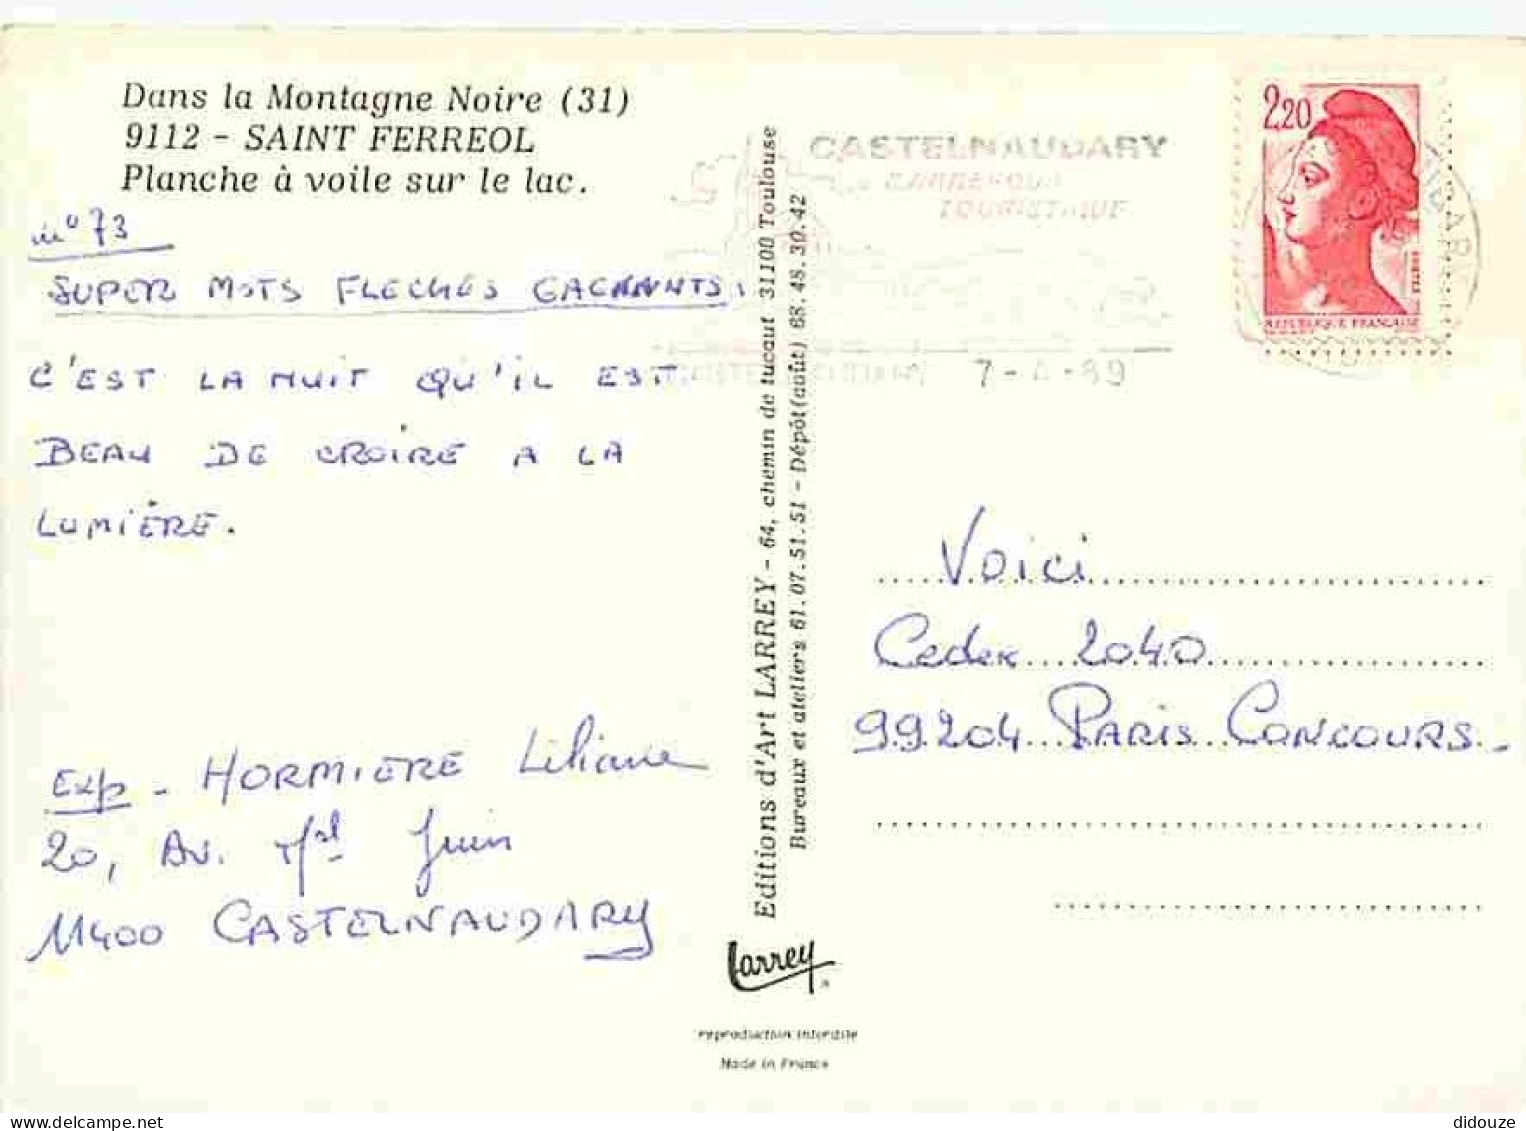 Dans la Montagne Noire (31)
9112 - SAINT FERREOL
Planche à voile sur le lac.
n° 73
SUPER MOTS FLECHÉS GAGNANTS.
C'EST LA NUIT QU'IL EST
BEAU DE CROIRE A LA
LUMIÈRE.
Exp - HORMIERE Liliane
20, Av. Mal Juin
11400 CASTELNAUDARY
Editions d'Art LARREY - 64, chemin de tucaut 31100 Toulouse
Bureaux et ateliers 61.07.51.51 - Dépôt (août) 68.48.30.42
Larrey
reproduction interdite
Made in France
CASTELNAUDARY
CARREFOUR
TOURISTIQUE
89
2,20
REPUBLIQUE FRANÇAISE
Voici
Cedex 2040
99204 PARIS CONCOURS
didouze